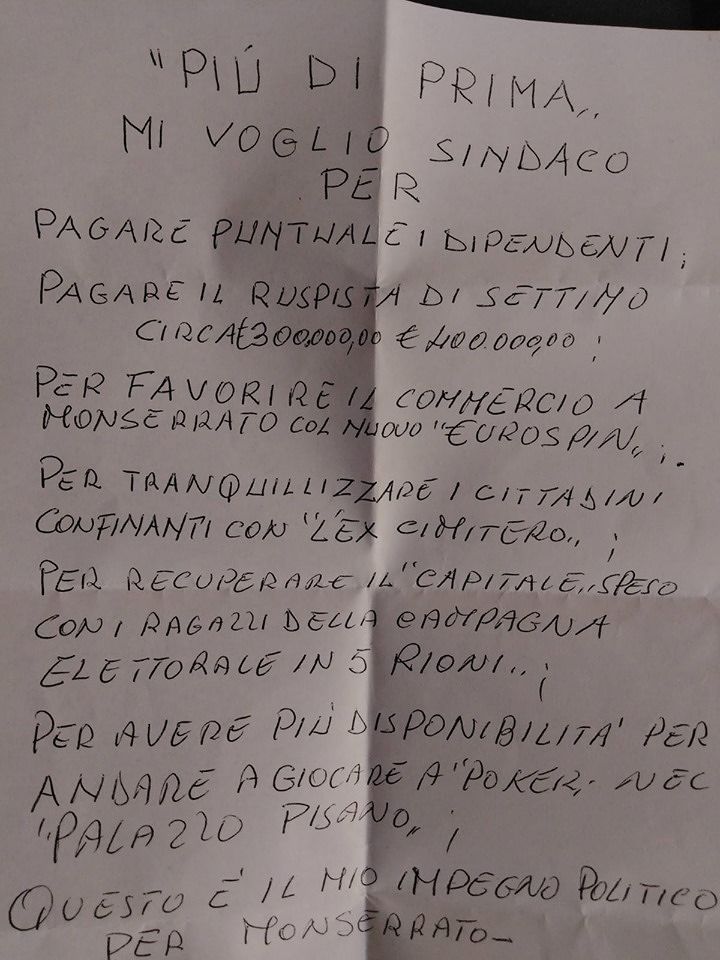 "PIÚ DI PRIMA„
MI VOGLIO SINDACO
PER
PAGARE PUNTUALE I DIPENDENTI;
PAGARE IL RUSPISTA DI SETTIMO
CIRCA €300.000,00 € 400.000,00 ;
PER FAVORIRE IL COMMERCIO A
MONSERRATO COL NUOVO "EUROSPIN„ ;.
PER TRANQUILLIZZARE I CITTADINI
CONFINANTI CON "L'EX CIMITERO„ ;
PER RECUPERARE IL "CAPITALE„ SPESO
CON I RAGAZZI DELLA CAMPAGNA
ELETTORALE IN 5 RIONI„ ;
PER AVERE PIÙ DISPONIBILITA' PER
ANDARE A GIOCARE A "POKER„ NEL
"PALAZZO PISANO„ ;
QUESTO E' IL MIO IMPEGNO POLITICO
PER MONSERRATO_